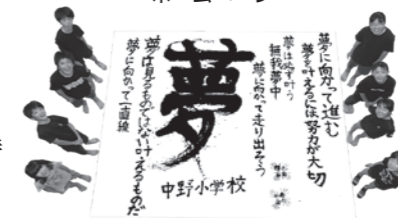 夢に向かって進む
夢を叶えるには努力が大切
夢は必ず叶う
無我夢中
夢に向かって走り出そう
夢
中野小学校
夢は見るものではない叶えるものだ
夢に向かって一直線